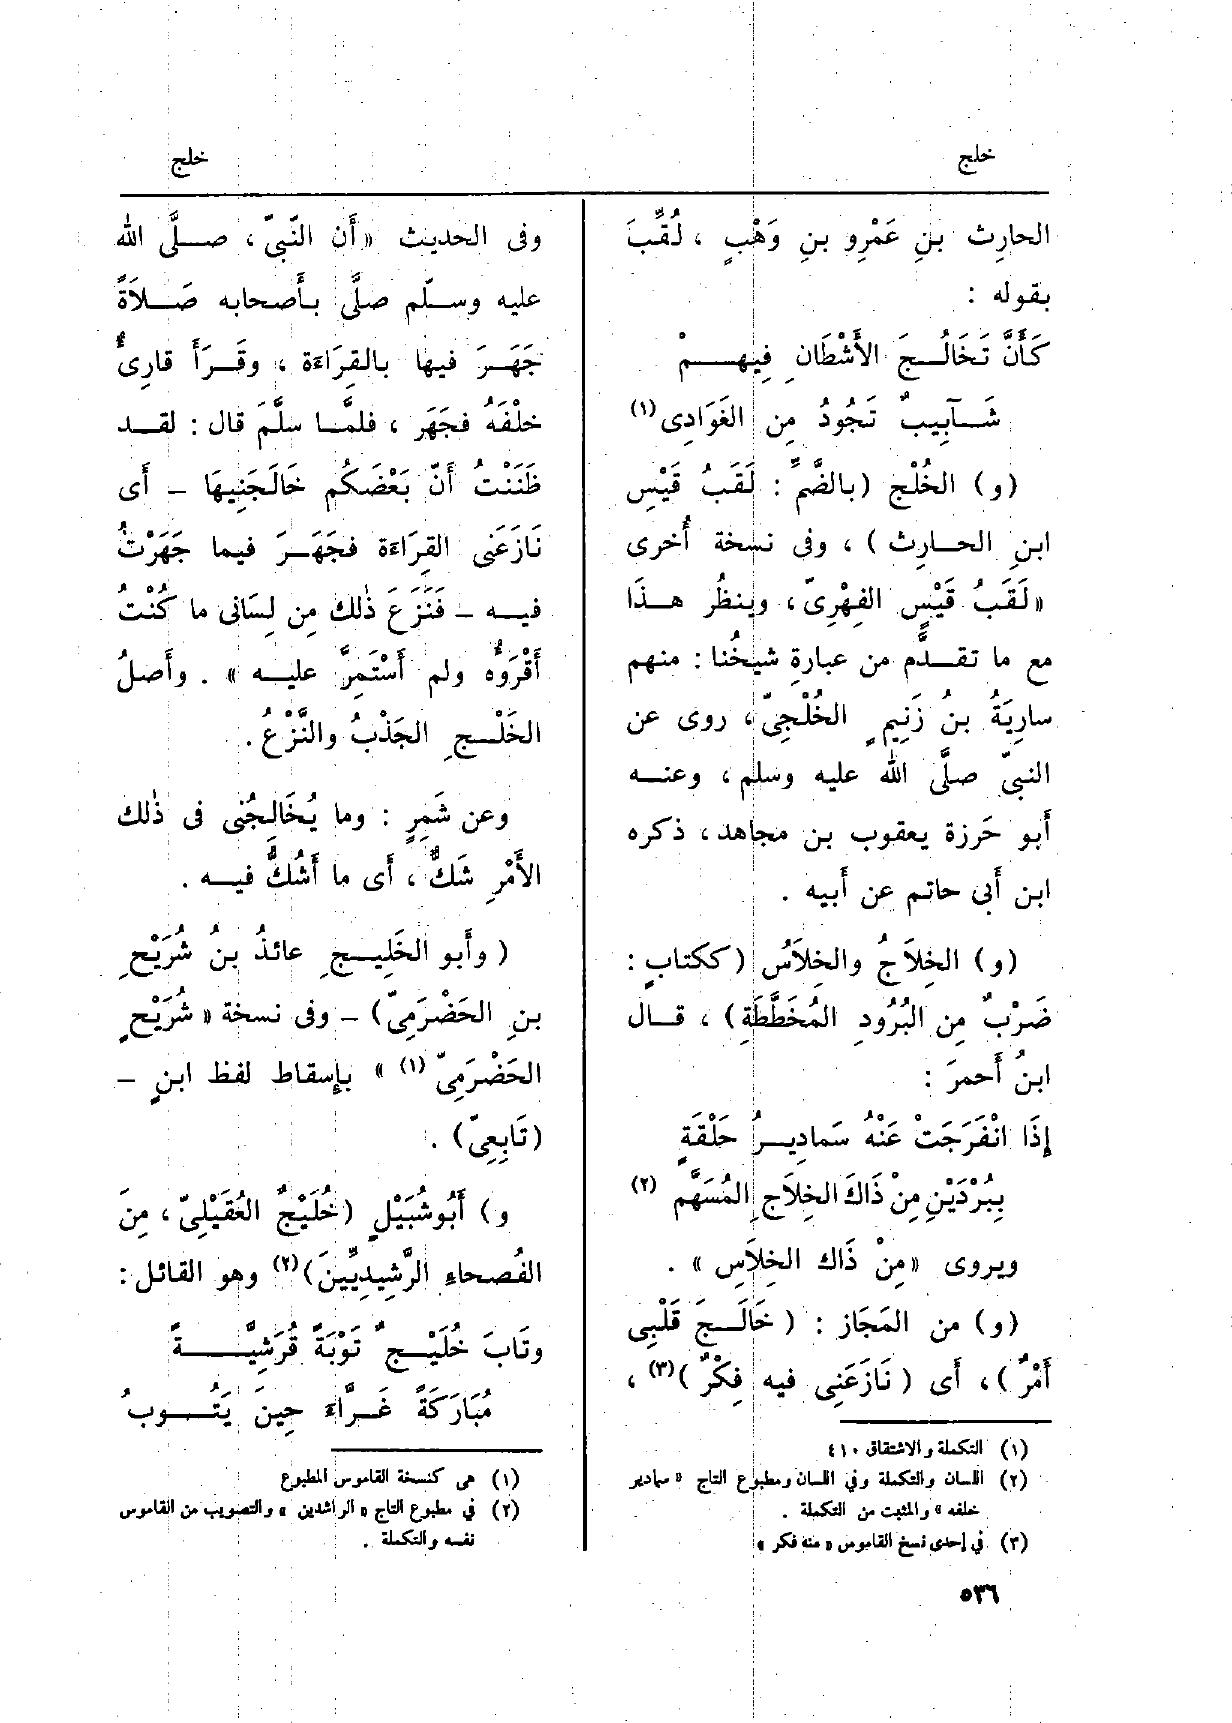 خلج
خلج
الحارِث بنِ عَمْرِو بنِ وَهْبٍ ، لُقِّبَ
بقوله :
كَأَنَّ تَخَالُـجَ الأَشْطَانِ فِيهِـمْ
شَـآبِيبٌ تَجُودُ مِن الغَوَادِى (١)
(و) الخُلْج (بالضَّمّ : لَقَبُ قَيْسِ
ابنِ الحـارِث) ، وفى نسخة أُخرى
«لَقَبُ قَيْسٍ الفِهْرِىّ ، وينظُر هـذَا
مع ما تقـدَّم من عبارةِ شيخُنا : منهم
سارِيَةُ بنُ زَنِيمٍ الخُلْجِىّ ، روى عن
النبىّ صلَّى الله عليه وسلم ، وعنـه
أَبو حَرزة يعقوب بن مجاهد ، ذكره
ابن أَبى حاتم عن أَبيه .
(و) الخِلاَجُ والخِلاَسُ (ككتابٍ :
ضَرْبٌ مِن البُرُودِ المُخَطَّطَةِ) ، قـال
ابنُ أَحمرَ :
إِذَا انْفَرَجَتْ عَنْهُ سَمادِيـرُ حَلْقَةٍ
بِبُرْدَيْنِ مِنْ ذَاكَ الخِلاَجِ المُسَهَّمِ (٢)
ويروى «مِنْ ذَاك الخِلاَسِ» .
(و) من المَجَاز : (خَالَـجَ قَلْبِى
أَمْرٌ) ، أَى (نَازَعَنِى فيه فِكْرٌ)(٣) ،
(١) التكملة والاشتقاق ٤١٠
(٢) اللسان والتكملة وفي اللسان ومطبوع التاج « سمادير
خلفه » والمثبت من التكملة .
(٣) في إحدى نسخ القاموس « منه فكر »
وفى الحديث «أَن النَّبىّ ، صـلَّى الله
عليه وسـلّم صلَّى بـأَصحابه صَـلاَةً
جَهَـرَ فيها بالقِرَاءَة ، وقَـرَأَ قارِئٌ
خلْفَهُ فجَهَر ، فلمَّـا سلَّمَ قال : لقـد
ظَنَنْتُ أَنّ بَعْضَكُم خَالَجَنِيهَا – أَى
نَازَعَنى القِرَاءَة فجَهَـرَ فيما جَهَرْتُ
فيـه – فَنَزَعَ ذٰلك مِن لِسَانى ما كُنْتُ
أَقْرَوُه ولم أَسْتَمِرَّ عليـه» . وأَصلُ
الخَلْـجِ الجَذْبُ والنَّزْعُ .
وعن شَمِرٍ : وما يُخَالِجُنِى فى ذٰلك
الأَمْرِ شَكٌّ ، أَى ما أَشُكُّ فيـه .
( وأَبو الخَلِيـجِ عائذُ بنُ شُرَيْحِ
بنِ الحَضْرَمِىّ) – وفى نسخة «شُرَيْحٍ
الحَضْرَمِىّ (١) » بإِسقاط لفظ ابنٍ –
(تَابِعِىّ) .
و) أَبُو شُبَيْلٍ (خُلَيْجٌ العُقَيْلِىّ ، مِنَ
الفُصحاءِ الرَّشِيدِيِّينَ)(٢) وهو القائل :
وتَابَ خُلَيْـجٌ تَوْبَةً قُرَشِيَّـةً
مُبَارَكَةً غَـرَّاءَ حِينَ يَتُـوبُ
(١) هى كنسخة القاموس المطبوع
(٢) في مطبوع التاج « الراشدين » والتصويب من القاموس
نفسه والتكملة .
٥٣٦